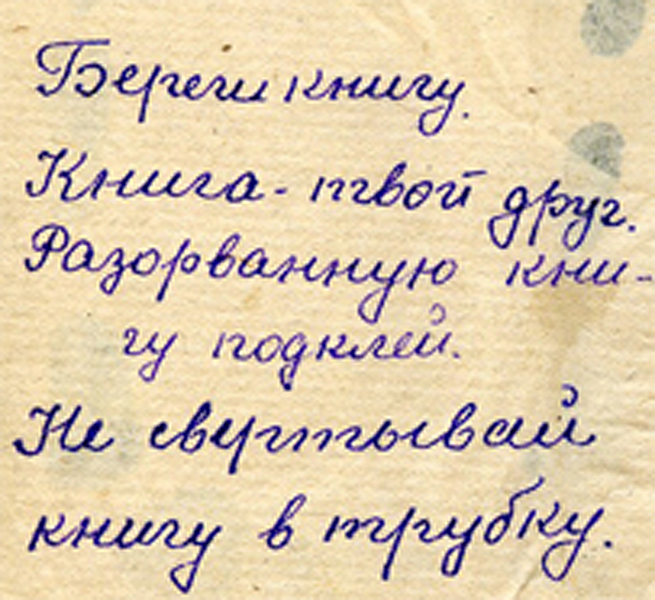 Береги книгу.
Книга - твой друг.
Разорванную кни-
гу подклей.
Не свертывай
книгу в трубку.